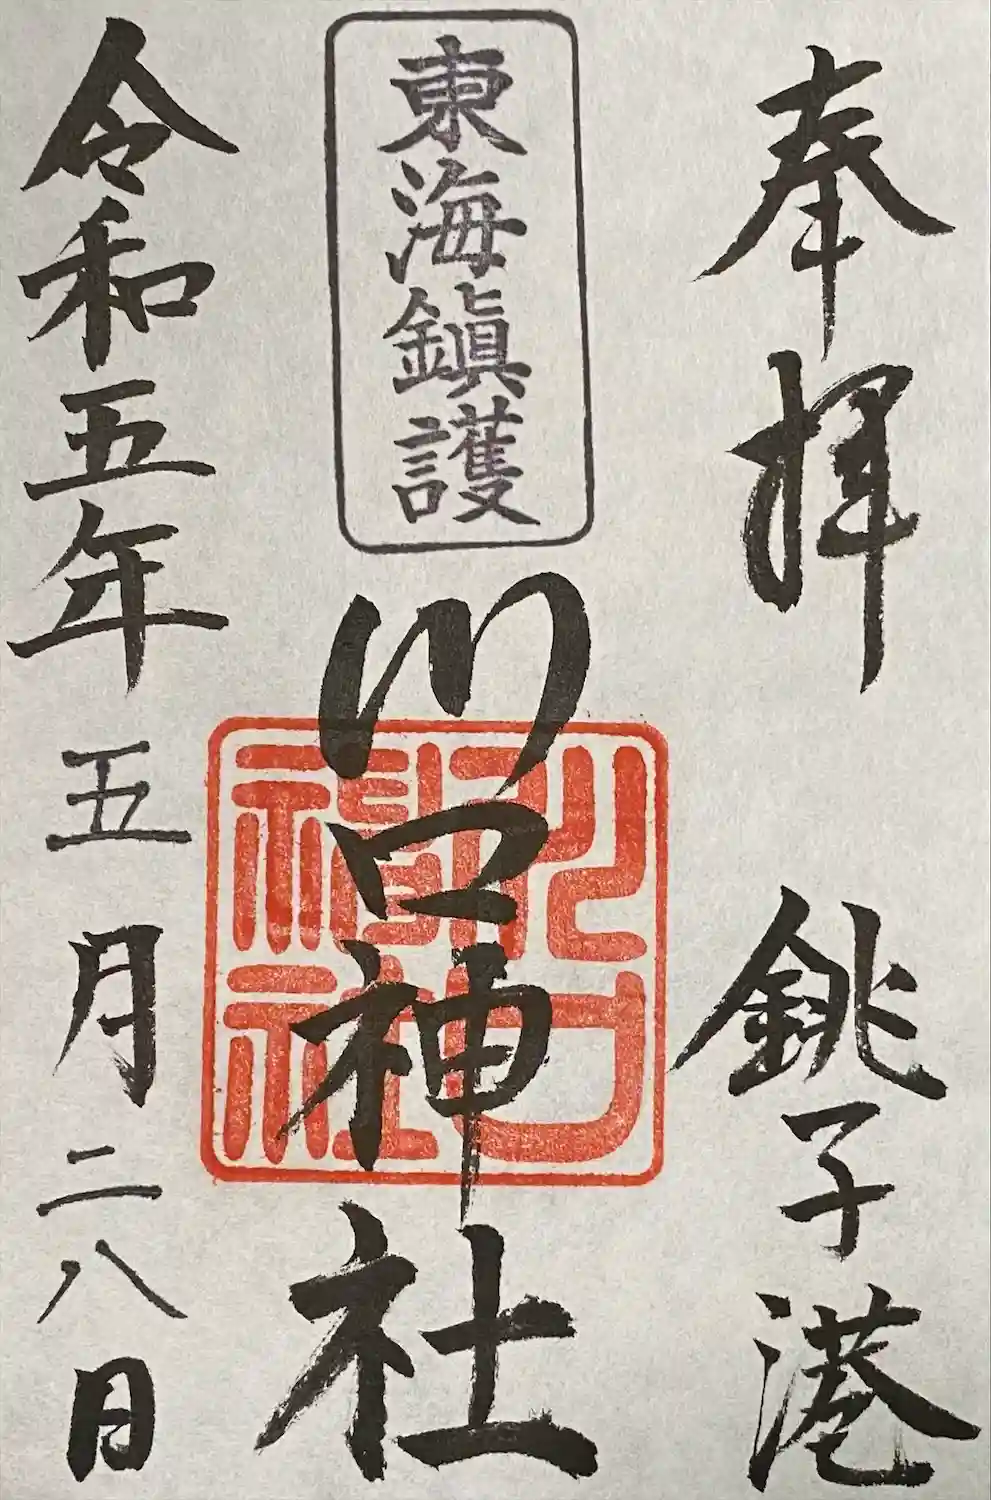 奉拝
銚子港
東海鎮護
川口神社
令和五年五月二八日